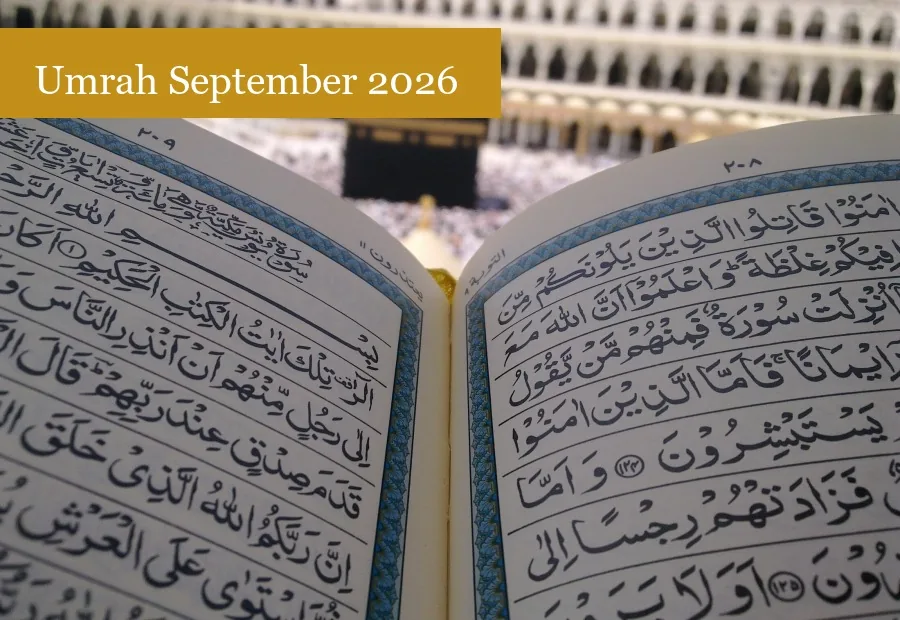 Umrah September 2026
٢٠٨
التوبة ٩
اٰمَنُوْا قَاتِلُوا الَّذِيْنَ يَلُوْنَكُمْ مِّنَ
فِيْكُمْ غِلْظَةً ؕ وَاعْلَمُوْۤا اَنَّ اللّٰهَ مَعَ
اُنْزِلَتْ سُوْرَةٌ فَمِنْهُمْ مَّنْ يَّقُوْلُ
اِيْمَانًا ۚ فَاَمَّا الَّذِيْنَ اٰمَنُوْا
يَسْتَبْشِرُوْنَ ﴿١٢٤﴾ وَاَمَّا
فَزَادَتْهُمْ رِجْسًا اِلٰى
﴿١٢٥﴾ اَوَلَا يَرَوْنَ
٢٠٩
يعتذرون ١١
سُوْرَةُ يُوْنُسَ مَكِّيَّةٌ
بِسْمِ اللّٰهِ
الٓرٰ ۫ تِلْكَ اٰيٰتُ الْكِتٰبِ الْحَكِيْمِ ﴿١﴾ اَكَانَ
اِلٰى رَجُلٍ مِّنْهُمْ اَنْ اَنْذِرِ النَّاسَ وَ
قَدَمَ صِدْقٍ عِنْدَ رَبِّهِمْ ؔ قَالَ
اِنَّ رَبَّكُمُ اللّٰهُ الَّذِىْ خَلَقَ
ثُمَّ اسْتَوٰى عَلَى الْعَرْشِ